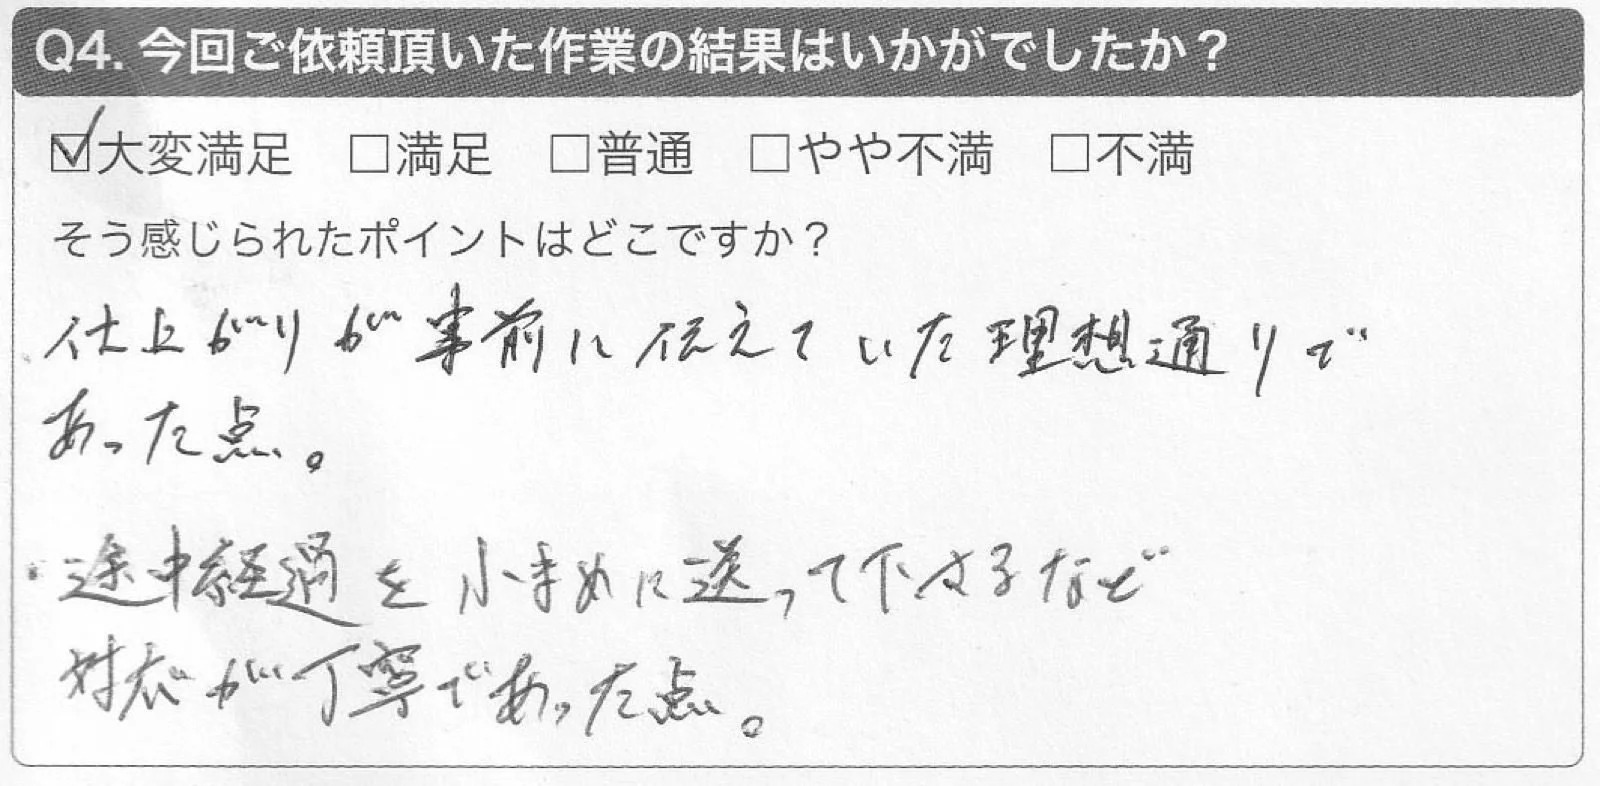 Q4. 今回ご依頼頂いた作業の結果はいかがでしたか？
☑大変満足 □満足 □普通 □やや不満 □不満
そう感じられたポイントはどこですか？
・仕上がりが事前に伝えていた理想通りで
あった点。
・途中経過を小まめに送って下さるなど
対応が丁寧であった点。